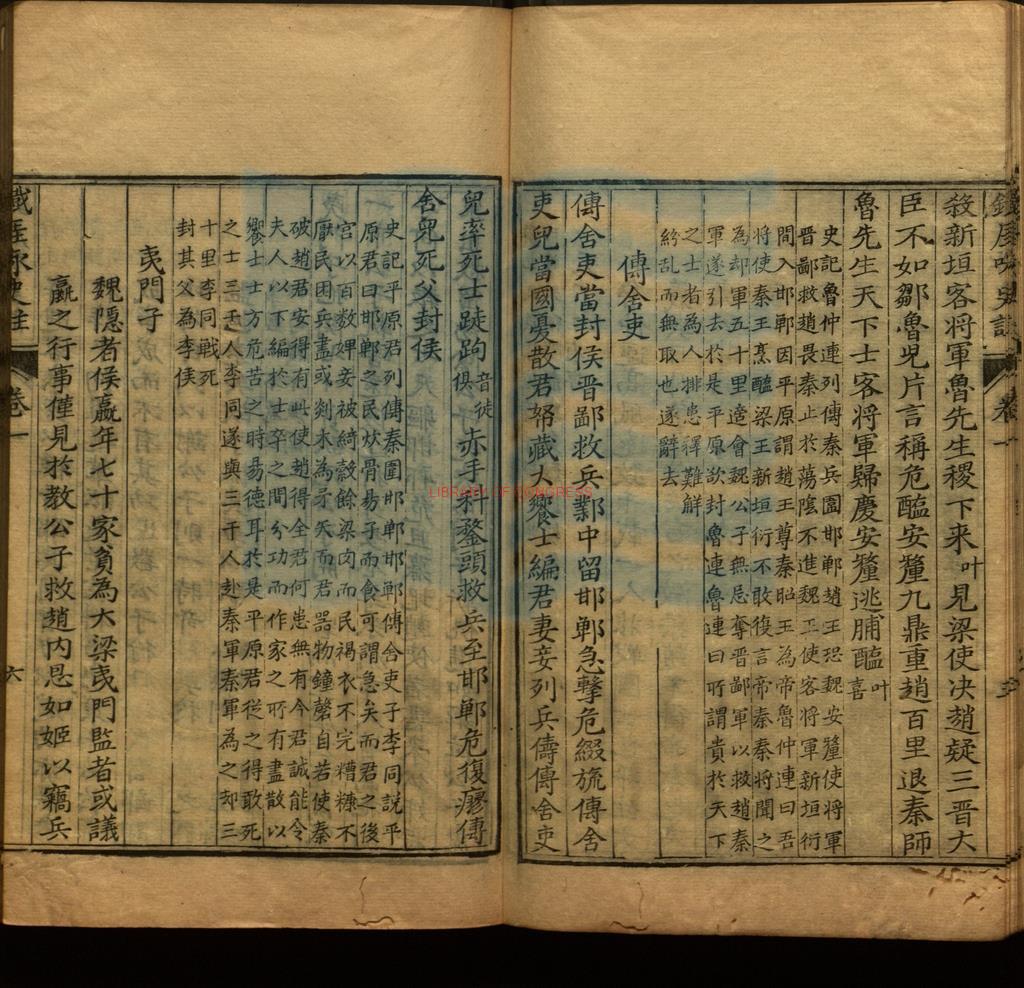 殺新垣客将軍魯先生稷下来叶見梁使决趙疑三晋大
臣不如鄒魯児片言稱危醢安釐九鼎重趙百里退秦師
魯先生天下士客将軍歸慶安釐逃脯醢叶喜
史記魯仲連列傳秦兵圍邯鄲趙王恐魏安釐使将軍
晋鄙救趙畏秦止於蕩陰不進魏王使客将軍新垣衍
間入邯鄲因平原謂趙王尊秦昭王為帝魯仲連曰吾
将使秦王烹醢梁王新垣衍不敢復言帝秦秦将聞之
為却軍五十里適會魏公子無忌奪晋鄙軍以救趙秦
軍遂引去於是平原欲封魯連魯連曰所謂貴於天下
之士者為人排患釋難解
紛乱而無取也遂辭去
傳舍吏
傳舍吏當封侯晋鄙救兵鄴中留邯鄲急擊危綴旒傳舍
吏兒當國憂散君帑藏大饗士編君妻妾列兵儔傳舍吏
兒率死士䟕跔音徒俱赤手科鍪頭救兵至邯鄲危復瘳傳
舍兒死父封侯
史記平原君列傳秦圍邯鄲邯鄲傳舍吏子李同說平
原君曰邯鄲之民炊骨易子而食可謂急矣而君之後
宮以百数婢妾被綺縠餘梁肉而民褐衣不完糟糠不
厭民困兵盡或剡木為矛矢而君器物鐘磬自若使秦
破趙君安得有此使趙得全君何患無有今君誠能令
夫人以下編於士卒之間分功而作家之所有盡散以
饗士士方危苦之時易德耳於是平原君從之得敢死
之士三千人李同遂與三千人赴秦軍秦軍為之却三
十里李同戰死
封其父為李侯
夷門子
魏隱者侯嬴年七十家貧為大梁夷門監者或議
嬴之行事僅見於教公子救趙内恳如姬以竊兵
卷一
六
LIBRARY OF CONGRESS